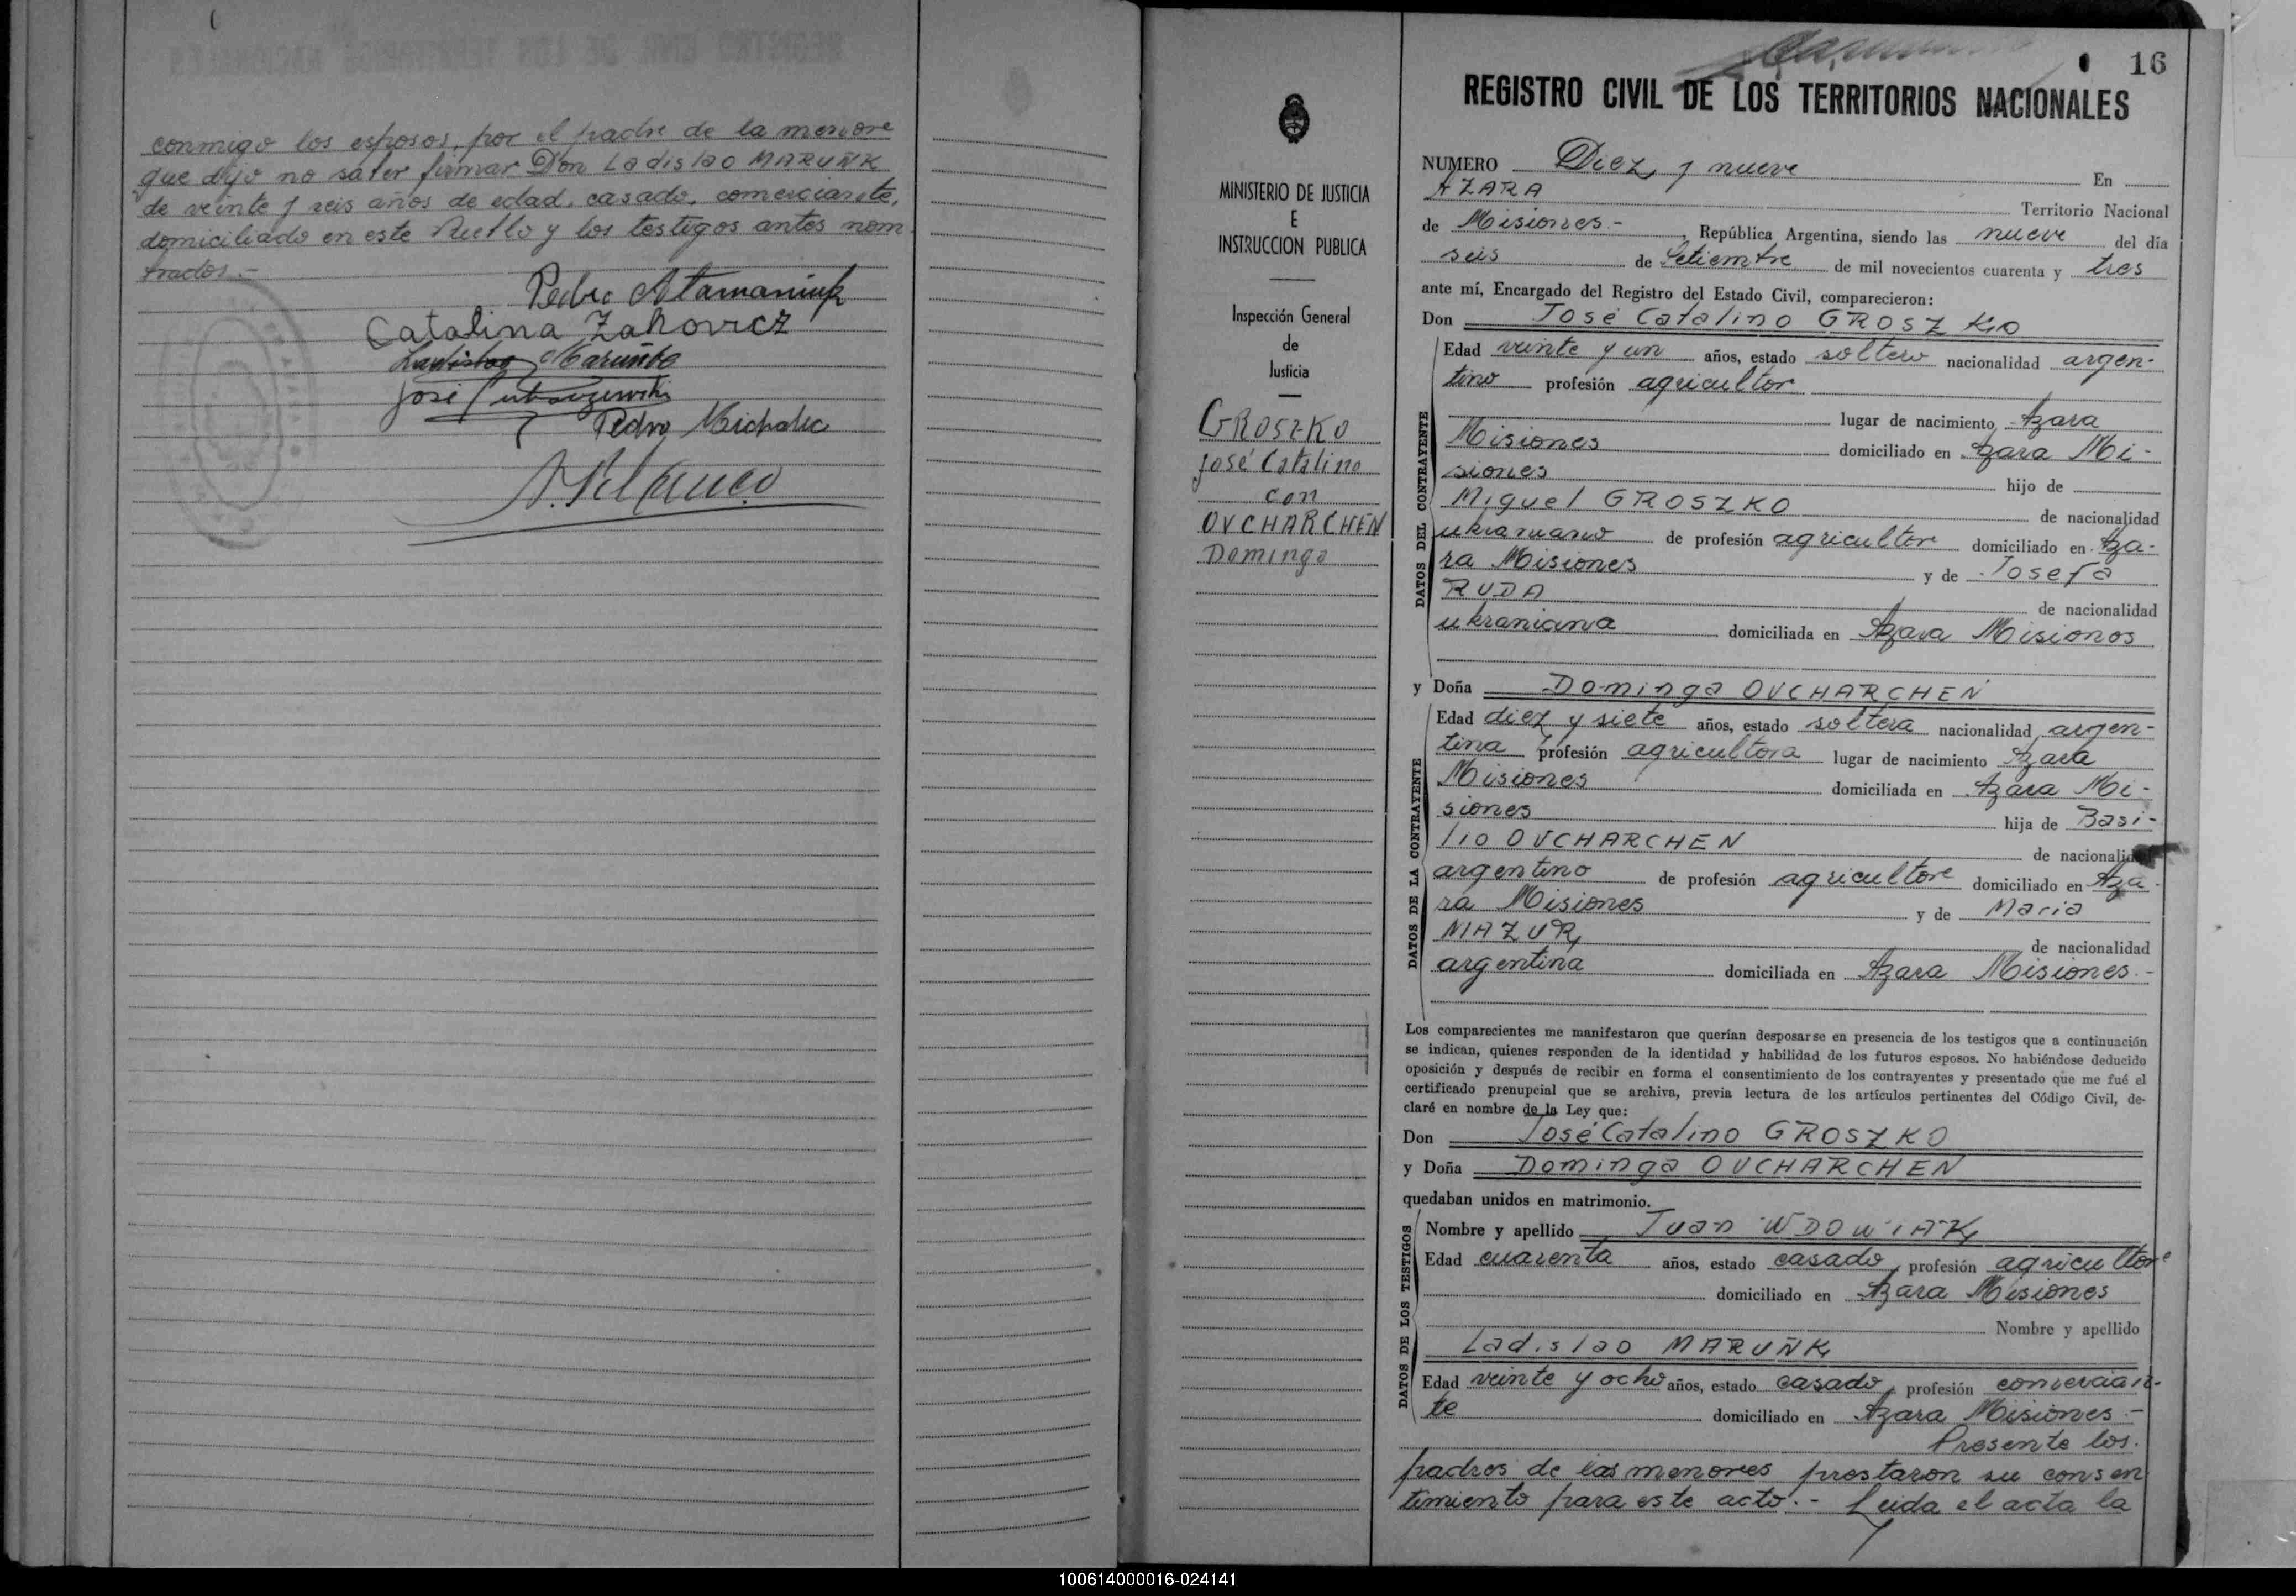 conmigo los esposos, por el padre de la menore
que dijo no saber firmar Don Ladislao MARUÑK
de veinte y seis años de edad, casado, comerciante,
domiciliado en este Pueblo y los testigos antes nom
brados.-
Pedro Atamaniuk
Catalina Zakovicz
Ladislao Maruñk
José
Pedro Michalec
16
REGISTRO CIVIL DE LOS TERRITORIOS NACIONALES
MINISTERIO DE JUSTICIA
E
INSTRUCCION PUBLICA
Inspección General
de
Justicia
GROSZKO
José Catalino
con
OVCHARCHEN
Dominga
NUMERO Diez y nueve En
AZARA Territorio Nacional
de Misiones.- , República Argentina, siendo las nueve del día
seis de Setiembre de mil novecientos cuarenta y tres
ante mí, Encargado del Registro del Estado Civil, comparecieron:
Don José Catalino GROSZKO
DATOS DEL CONTRAYENTE
Edad veinte y un años, estado soltero nacionalidad argen-
tino profesión agricultor
lugar de nacimiento Azara
Misiones domiciliado en Azara Mi-
siones hijo de
Miguel GROSZKO de nacionalidad
ukraniano de profesión agricultor domiciliado en Aza-
ra Misiones y de Josefa
RUDA de nacionalidad
ukraniana domiciliada en Azara Misiones
y Doña Dominga OVCHARCHEN
DATOS DE LA CONTRAYENTE
Edad diez y siete años, estado soltera nacionalidad argen-
tina profesión agricultora lugar de nacimiento Azara
Misiones domiciliada en Azara Mi-
siones hija de Basi-
lio OVCHARCHEN de nacionalidad
argentino de profesión agricultore domiciliado en Aza-
ra Misiones y de Maria
MAZUR de nacionalidad
argentina domiciliada en Azara Misiones.-
Los comparecientes me manifestaron que querían desposarse en presencia de los testigos que a continuación
se indican, quienes responden de la identidad y habilidad de los futuros esposos. No habiéndose deducido
oposición y después de recibir en forma el consentimiento de los contrayentes y presentado que me fué el
certificado prenupcial que se archiva, previa lectura de los artículos pertinentes del Código Civil, de-
claré en nombre de la Ley que:
Don José Catalino GROSZKO
y Doña Dominga OVCHARCHEN
quedaban unidos en matrimonio.
DATOS DE LOS TESTIGOS
Nombre y apellido Juan WDOWIAK
Edad cuarenta años, estado casado, profesión agricultore
domiciliado en Azara Misiones
Nombre y apellido
Ladislao MARUÑK
Edad veinte y ocho años, estado casado, profesión comercian-
te domiciliado en Azara Misiones.-
Presente los
padres de los menores prestaron su consen
timiento para este acto.- Leida el acta la
100614000016-024141